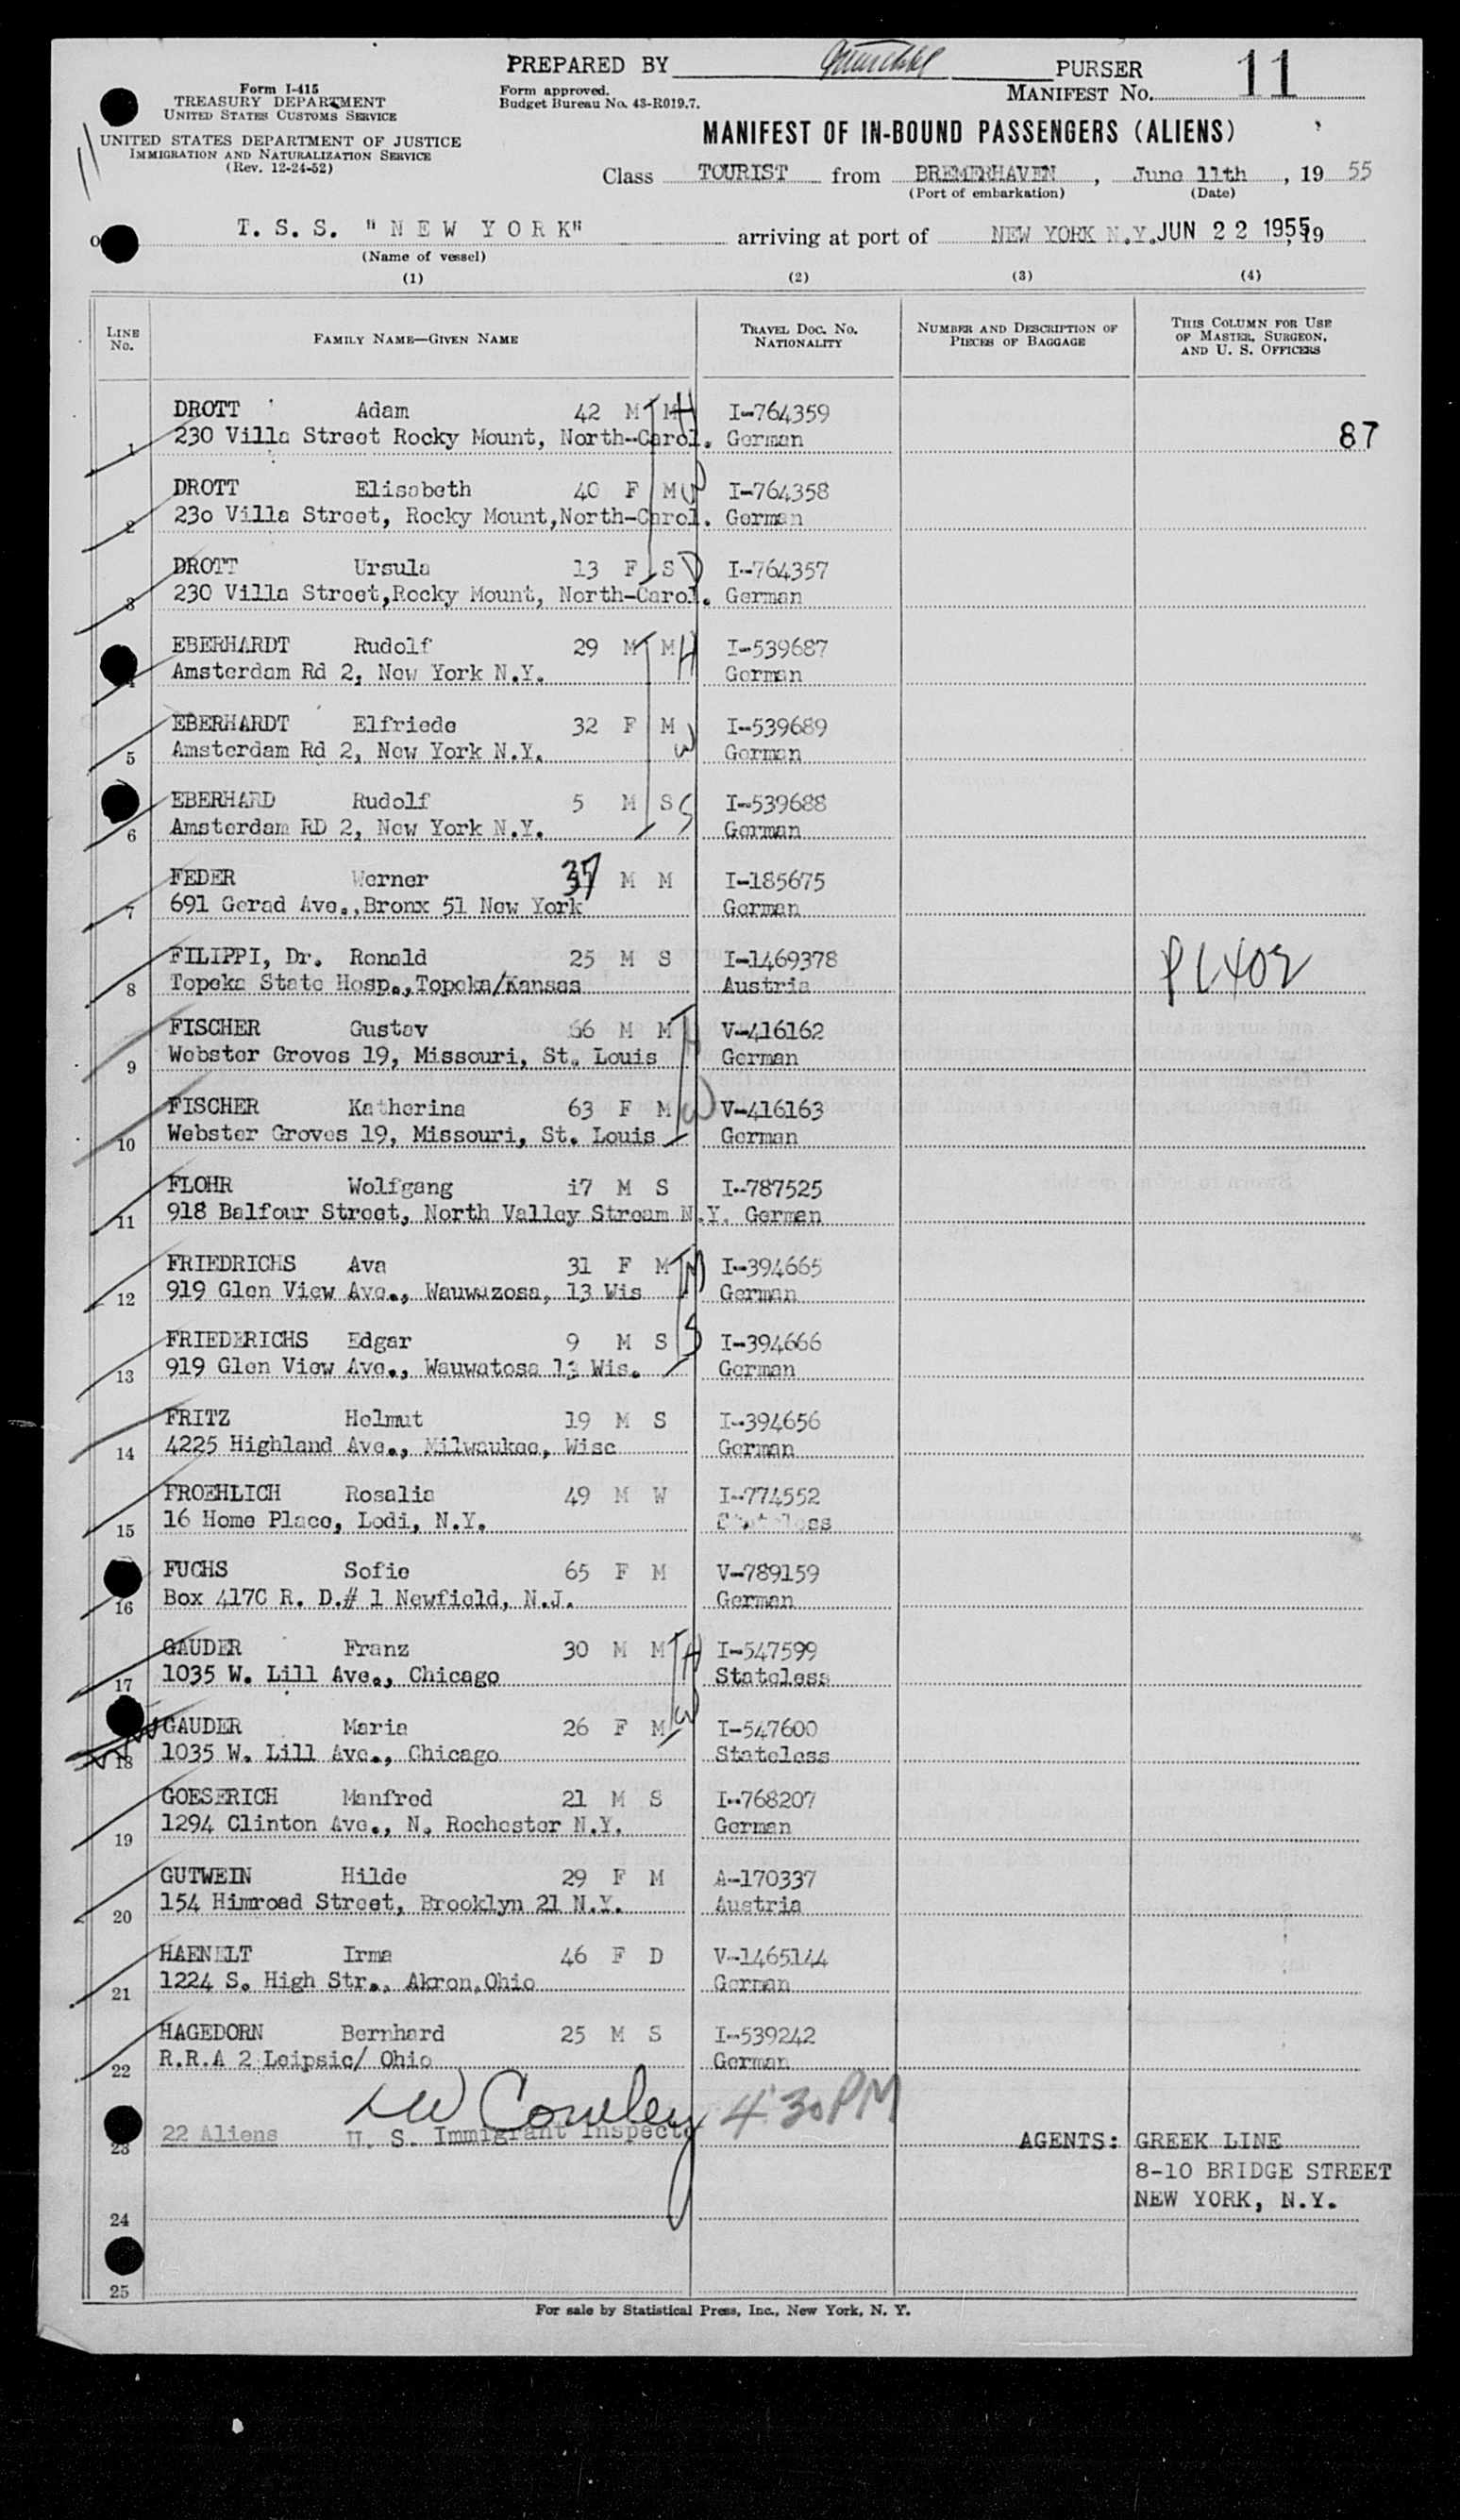 PREPARED BY PURSER
Form I-415
TREASURY DEPARTMENT
UNITED STATES CUSTOMS SERVICE
UNITED STATES DEPARTMENT OF JUSTICE
IMMIGRATION AND NATURALIZATION SERVICE
(Rev. 12-24-52)
Form approved.
Budget Bureau No. 43-R019.7.
MANIFEST NO. 11
MANIFEST OF IN-BOUND PASSENGERS (ALIENS)
Class TOURIST from BREMERHAVEN, June 11th, 19 55
(Port of embarkation) (Date)
T. S. S. "NEW YORK" arriving at port of NEW YORK N.Y. JUN 22 1955, 19
(Name of vessel)
(1) (2) (3) (4)
LINE NO. FAMILY NAME—GIVEN NAME TRAVEL DOC. NO. NATIONALITY NUMBER AND DESCRIPTION OF PIECES OF BAGGAGE THIS COLUMN FOR USE OF MASTER, SURGEON, AND U. S. OFFICERS
DROTT Adam 42 M M H I-764359
1 230 Villa Street Rocky Mount, North-Carol. German 87
DROTT Elisabeth 40 F M W I-764358
2 23o Villa Street, Rocky Mount,North-Carol. German
DROTT Ursula 13 F S D I-764357
3 230 Villa Street,Rocky Mount, North-Carol. German
EBERHARDT Rudolf 29 M M H I-539687
4 Amsterdam Rd 2, New York N.Y. German
EBERHARDT Elfriede 32 F M W I-539689
5 Amsterdam Rd 2, New York N.Y. German
EBERHARD Rudolf 5 M S S I-539688
6 Amsterdam RD 2, New York N.Y. German
FEDER Werner 37 M M I-185675
7 691 Gerad Ave.,Bronx 51 New York German
FILIPPI, Dr. Ronald 25 M S I-1469378
8 Topeka State Hosp.,Topeka/Kansas Austria
FISCHER Gustav 66 M M H V-416162
9 Webster Groves 19, Missouri, St. Louis German
FISCHER Katherina 63 F M W V-416163
10 Webster Groves 19, Missouri, St. Louis German
FLOHR Wolfgang 17 M S I-787525
11 918 Balfour Street, North Valley Stream N.Y. German
FRIEDRICHS Ava 31 F M M I-394665
12 919 Glen View Ave., Wauwazosa, 13 Wis German
FRIEDERICHS Edgar 9 M S S I-394666
13 919 Glen View Ave., Wauwatosa 13 Wis. German
FRITZ Helmut 19 M S I-394656
14 4225 Highland Ave., Milwaukee, Wisc German
FROEHLICH Rosalia 49 M W I-774552
15 16 Home Place, Lodi, N.Y. Stateless
FUCHS Sofie 65 F M V-789159
16 Box 417C R. D.# 1 Newfield, N.J. German
GAUDER Franz 30 M M H I-547599
17 1035 W. Lill Ave., Chicago Stateless
GAUDER Maria 26 F M W I-547600
18 1035 W. Lill Ave., Chicago Stateless
GOESERICH Manfred 21 M S I-768207
19 1294 Clinton Ave., N. Rochester N.Y. German
GUTWEIN Hilde 29 F M A-170337
20 154 Himroad Street, Brooklyn 21 N.Y. Austria
HAENELT Irma 46 F D V-1465144
21 1224 S. High Str., Akron,Ohio German
HAGEDORN Bernhard 25 M S I-539242
22 R.R.A 2 Leipsic/ Ohio German
Cowley 4:30 PM
23 22 Aliens U. S. Immigrant Inspector AGENTS: GREEK LINE
8-10 BRIDGE STREET
NEW YORK, N.Y.
24
25
For sale by Statistical Press, Inc., New York, N. Y.